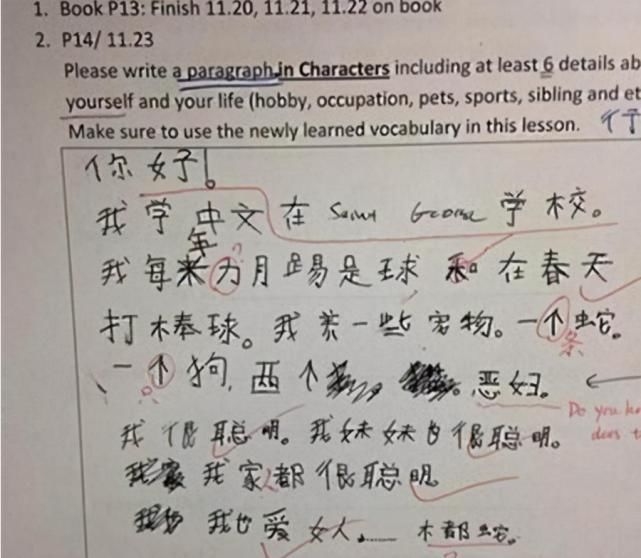 1. Book P13: Finish 11.20, 11.21, 11.22 on book
2. P14/ 11.23
Please write a paragraph in Characters including at least 6 details ab
yourself and your life (hobby, occupation, pets, sports, sibling and et
Make sure to use the newly learned vocabulary in this lesson. 行
你好!
我学中文在 Saint George 学校。
年
我每来为月踢是球和在春天
打棒球。我养一些宠物。一个蛇。
条
一个狗,两个 恶妇。
只
Do you kn
does t
我很聪明。我妹妹也很聪明。
我家都很聪明
我也爱女人…… 木都蛇。